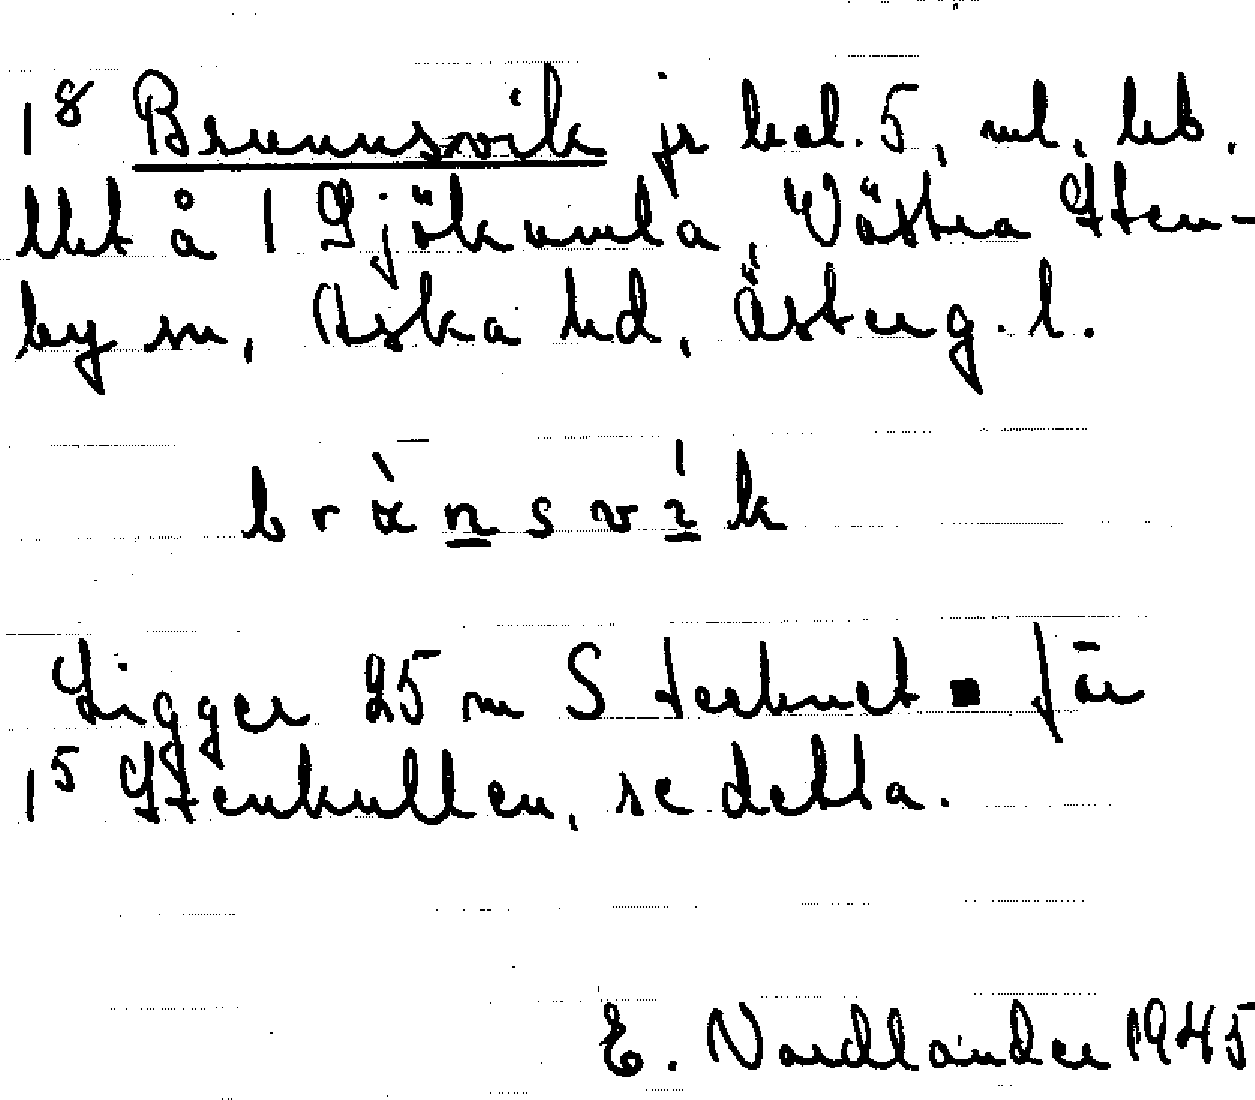 1⁸ Brunnsvik jr bel. 5, ml, hb.
llet å 1 Sjökumla, Västra Sten-
by sn, Aska hd, Österg. l.
brὰn̲sví̲k
Ligger 25 m S tecknet ■ för
1⁵ Stenkullen, se detta.
E. Nordlander 1945